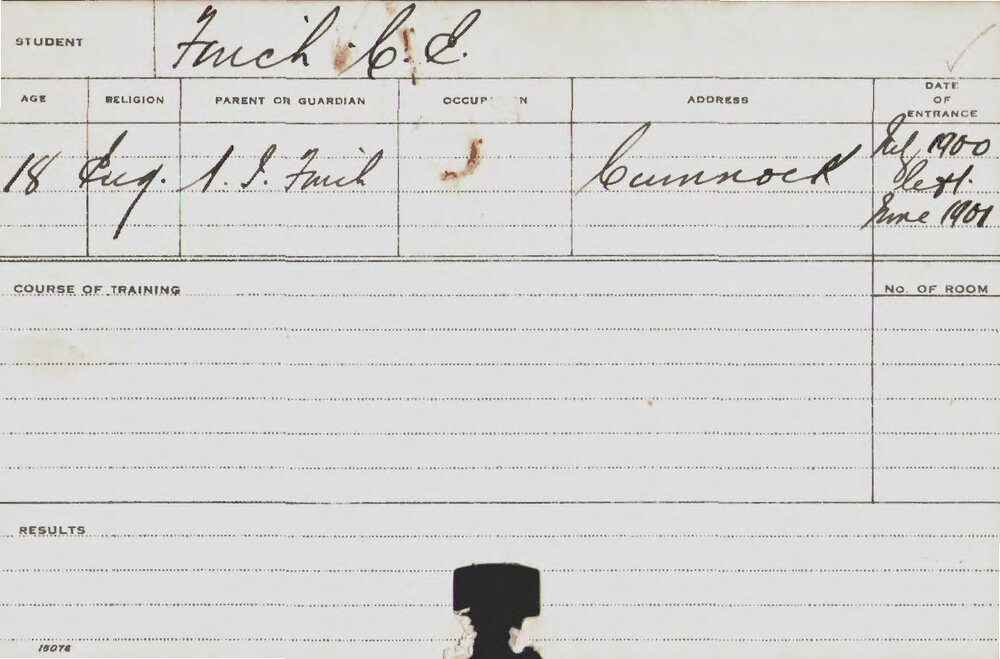 STUDENT Finch C. E.
AGE RELIGION PARENT OR GUARDIAN OCCUP N ADDRESS DATE OF ENTRANCE
18 Eng. Finch Cumnock July 1900
left.
June 1901
COURSE OF TRAINING No. OF ROOM
RESULTS
15076